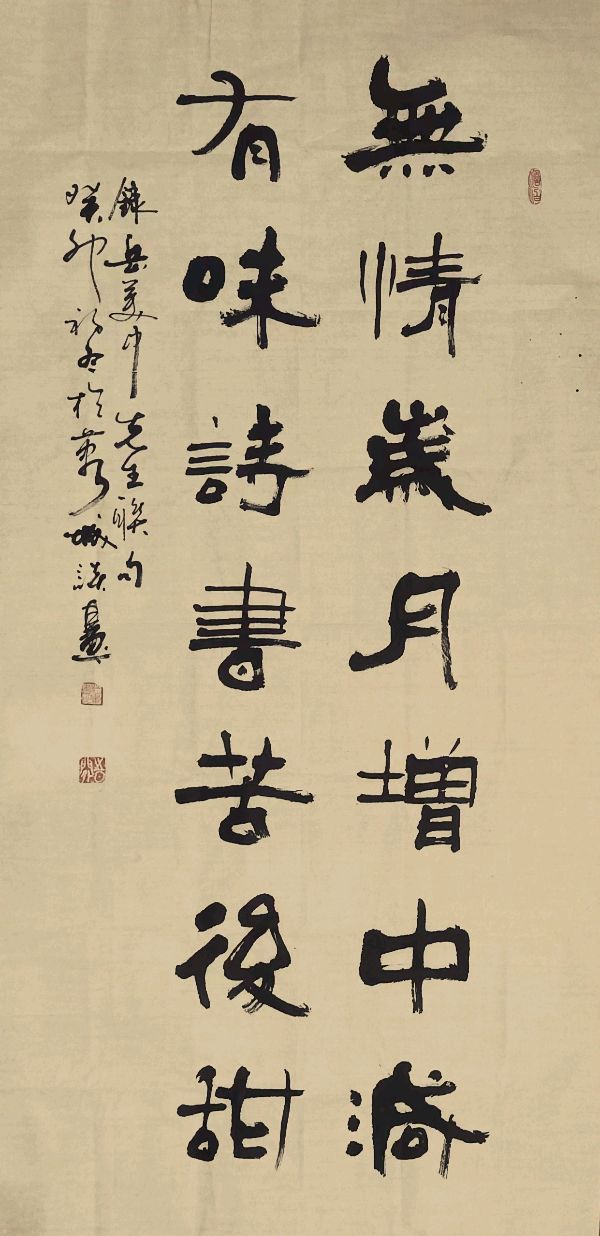 無情歲月增中減
有味詩書苦後甜
錄岳美中先生聯句
癸卯初冬於蓉城